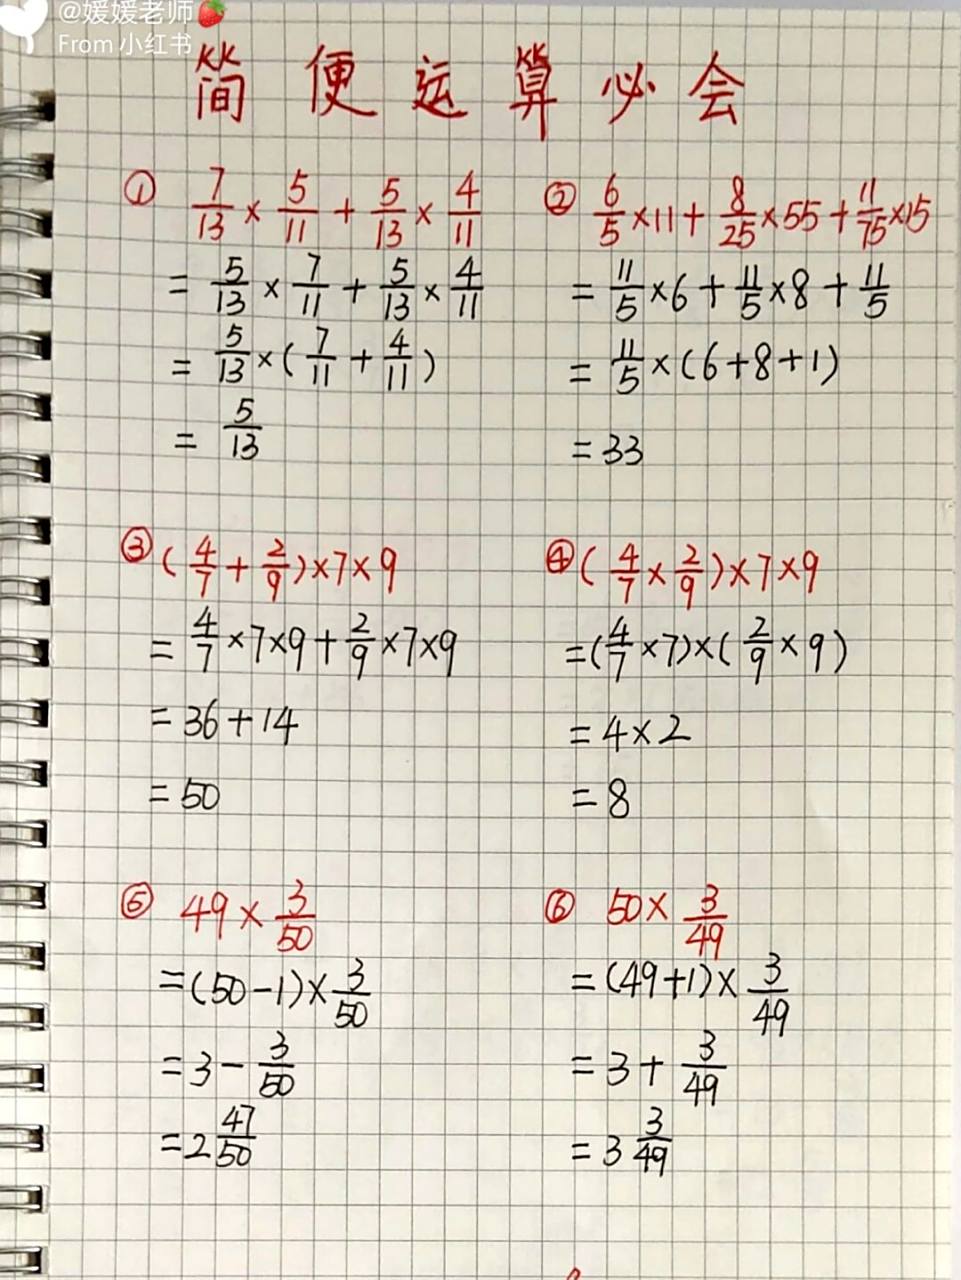 @媛媛老师🍓
From 小红书
简便运算必会
① 7/13 × 5/11 + 5/13 × 4/11
= 5/13 × 7/11 + 5/13 × 4/11
= 5/13 × (7/11 + 4/11)
= 5/13
② 6/5 × 11 + 8/25 × 55 + 11/75 × 15
= 11/5 × 6 + 11/5 × 8 + 11/5
= 11/5 × (6 + 8 + 1)
= 33
③ (4/7 + 2/9) × 7 × 9
= 4/7 × 7 × 9 + 2/9 × 7 × 9
= 36 + 14
= 50
④ (4/7 × 2/9) × 7 × 9
= (4/7 × 7) × (2/9 × 9)
= 4 × 2
= 8
⑤ 49 × 3/50
= (50 - 1) × 3/50
= 3 - 3/50
= 2 47/50
⑥ 50 × 3/49
= (49 + 1) × 3/49
= 3 + 3/49
= 3 3/49